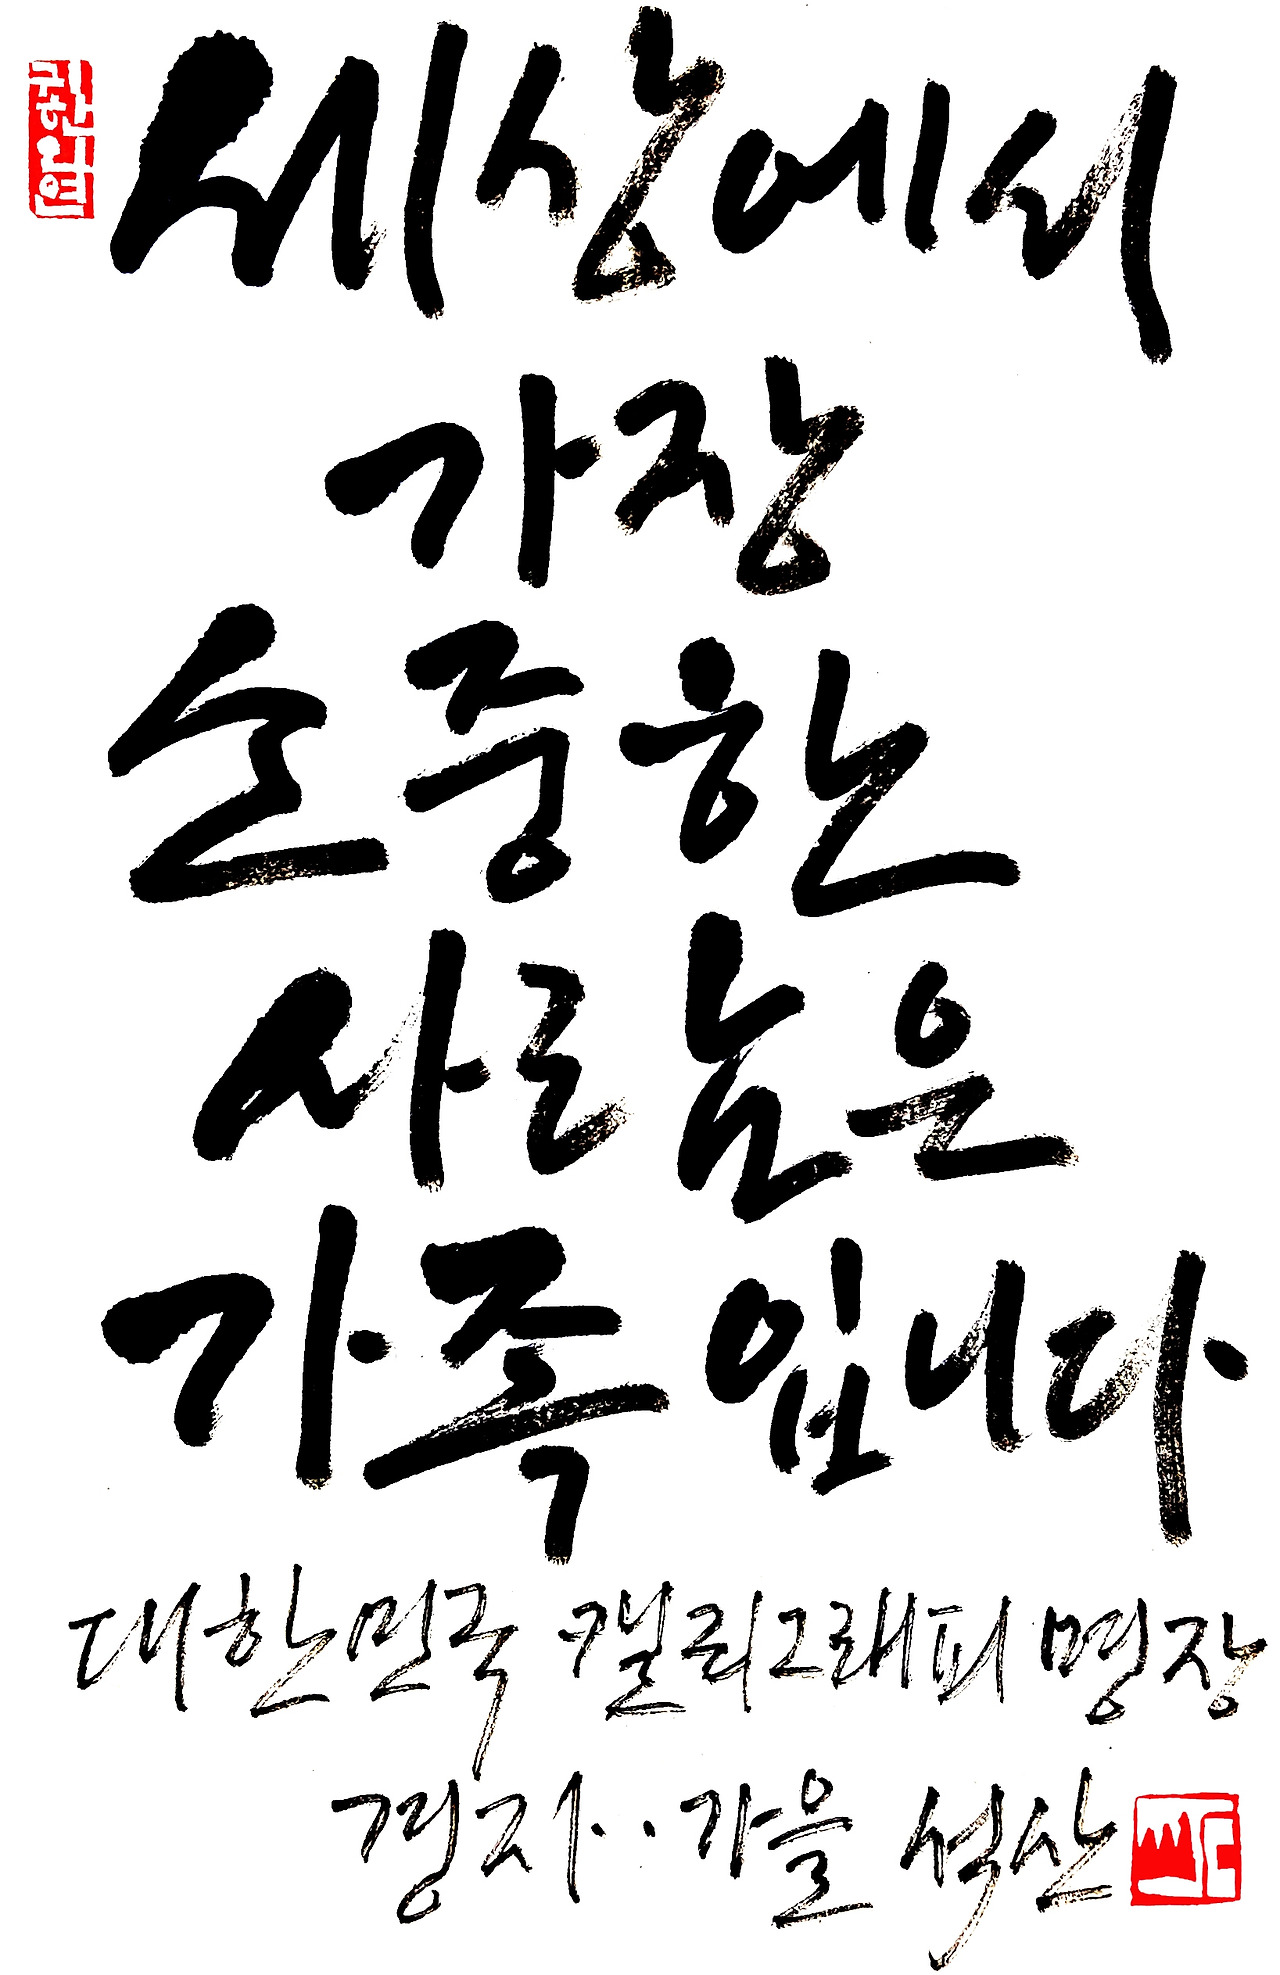 세상에서
가장
소중한
사람은
가족입니다
대한민국 캘리그래피 명장
경자·· 가을 석산